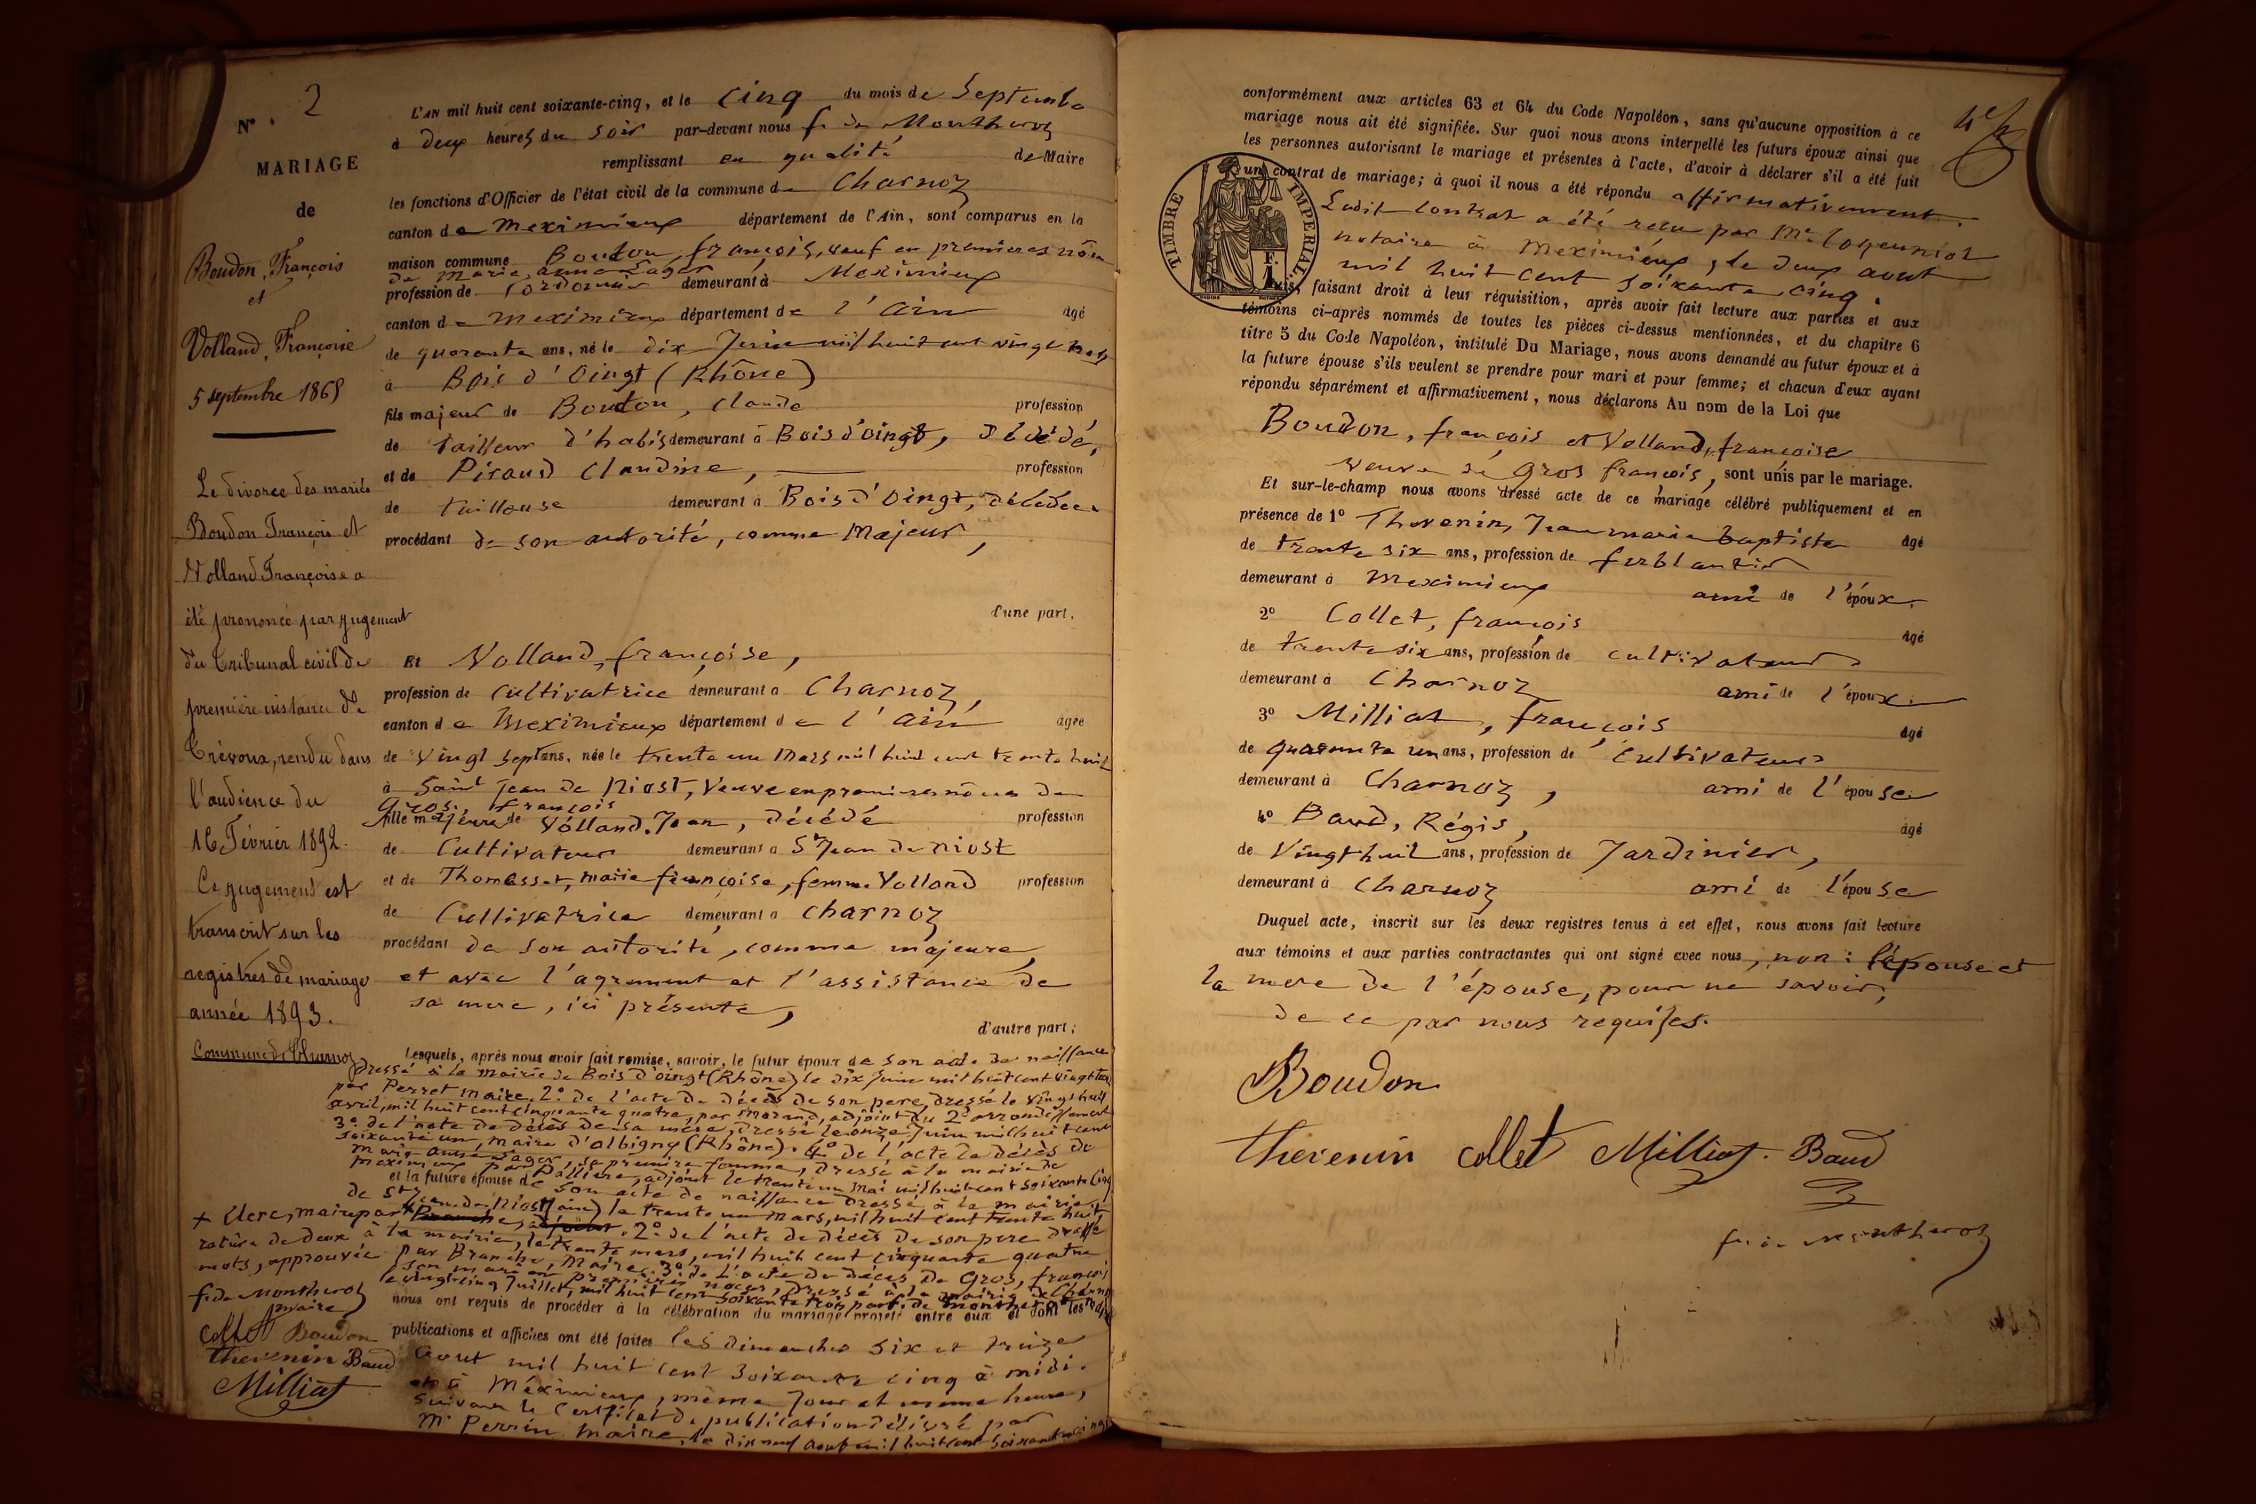 N° . 2
MARIAGE
de
Boudon, François
et
Volland, Françoise
5 septembre 1865
Le divorce des mariés
Boudon François et
Volland Françoise a
été prononcé par jugement
du Tribunal civil de
première instance de
Trévoux, rendu dans
l'audience du
16 Février 1892.
Ce jugement est
transcrit sur les
registres de mariage
année 1893.
Commune de Charnoz
+ Clerc, maire
rature de deux
mots, approuvée
f. de Montherot
maire
Collet Boudon
Thevenin Baud
Milliat
L'AN mil huit cent soixante-cinq, et le cinq du mois de Septembre
à deux heures du soir par-devant nous f. de Montheroz
remplissant en qualité de Maire
les fonctions d'Officier de l'état civil de la commune de Charnoz
canton de Meximieux département de l'Ain, sont comparus en la
maison commune Boudon, françois, veuf en premieres nôces
de Marie, anne Sager
profession de Cordonnier demeurant à Meximieux
canton de Meximieux département de l'Ain âgé
de quarante ans, né le dix Juin mil huit cent vingt
à Bois d'Oingt (Rhône)
fils majeur de Boudon, Claude profession
de tailleur d'habis demeurant à Bois d'oingt, Décédé,
et de Piraud Claudine, profession
de tailleuse demeurant à Bois d'Oingt, décédée
procédant de son autorité, comme Majeur,
d'une part.
Et Volland, françoise,
profession de Cultivatrice demeurant à Charnoz,
canton de Meximieux département de l'Ain âgée
de vingt sept ans, née le trente un Mars mil huit cent trente huit
à Saint Jean de Niost, Veuve en premieres nôces de
Gros, François
fille majeure de Volland, Jean, décédé profession
de Cultivateur demeurant à St Jean de Niost
et de Thomasset, marie françoise, femme Volland profession
de Cultivatrice demeurant à Charnoz
procédant de son autorité, comme majeure,
et avec l'agrement et l'assistance de
sa mere, ici présente,
d'autre part;
Lesquels, après nous avoir fait remise, savoir, le futur époux de son acte de naissance
dressé à la Mairie de Bois d'oingt (Rhône) le dix Juin mil huit cent vingt
par Perret maire. 2° de l'acte de décès de son pere, dressé le vingt huit
avril, mil huit cent cinquante quatre, par Morand, adjoint du 2e arrondissement
3° de l'acte de décès de sa mère, dressé le onze Juin mil huit cent
soixante un, maire d'albigny (Rhône). 4° de l'acte de décès de
Marie anne Sager, sa premiere femme, dressé à la mairie de
Meximieux par Pallière, adjoint le trente un Mai mil huit cent soixante cinq
et la future épouse de son acte de naissance dressé, à la mairie
de St Jean de Niost (ain) le trente un Mars, mil huit cent trente huit
par + Branche, adjoint. 2° de l'acte de décès de son pere dressé
à la mairie, le trente mars, mil huit cent cinquante quatre
par Branche, Maire. 3° de l'acte de décès de Gros, françois
son mari en premieres noces, dressé à la mairie de Charnoz
le vingt cinq Juillet, mil huit cent soixante trois par f. de Montherot
nous ont requis de procéder à la célébration du mariage projeté entre eux et dont les
publications et affiches ont été faites les dimanches six et treize
aout mil huit cent soixante cinq à midi.
et à Méximieux, même jour et meme heure,
suivant le certificat de publication délivré par
Mr Perrin Maire, le dix neuf aout mil huit cent soixante cinq
conformément aux articles 63 et 64 du Code Napoléon, sans qu'aucune opposition à ce
mariage nous ait été signifiée. Sur quoi nous avons interpellé les futurs époux ainsi que
les personnes autorisant le mariage et présentes à l'acte, d'avoir à déclarer s'il a été fait
un contrat de mariage; à quoi il nous a été répondu affirmativement.
Ledit contrat a été reçu par Me
notaire à Meximieux, le deux aout
mil huit cent soixante cinq.
TIMBRE IMPERIAL.
faisant droit à leur réquisition, après avoir fait lecture aux parties et aux
témoins ci-après nommés de toutes les pièces ci-dessus mentionnées, et du chapitre 6
titre 5 du Code Napoléon, intitulé Du Mariage, nous avons demandé au futur époux et à
la future épouse s'ils veulent se prendre pour mari et pour femme; et chacun d'eux ayant
répondu séparément et affirmativement, nous déclarons Au nom de la Loi que
Boudon, françois et Volland, françoise
veuve de Gros françois, sont unis par le mariage.
Et sur-le-champ nous avons dressé acte de ce mariage célébré publiquement et en
présence de 1° Thevenin, Jean marie Baptiste âgé
de trente six ans, profession de ferblantier
demeurant à Meximieux ami de l'époux.
2° Collet, françois âgé
de trente six ans, profession de cultivateur
demeurant à Charnoz ami de l'époux.
3° Milliat, françois âgé
de quarante un ans, profession de Cultivateur
demeurant à Charnoz, ami de l'épouse
4° Baud, Régis, âgé
de Vingt huit ans, profession de Jardinier,
demeurant à Charnoz ami de l'épouse
Duquel acte, inscrit sur les deux registres tenus à cet effet, nous avons fait lecture
aux témoins et aux parties contractantes qui ont signé avec nous, non : l'épouse et
la mere de l'épouse, pour ne savoir,
de ce par nous requises.
Boudon
thevenin collet Milliat. Baud
f. de Montheroz